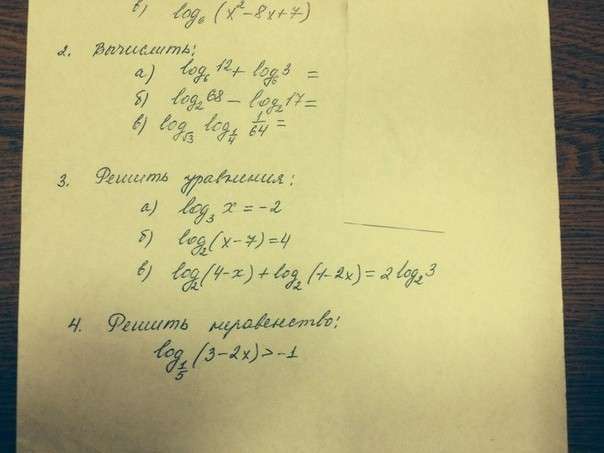 в) log₆ (x² – 8x + 7)
2. Вычислить:
а) log₆ 12 + log₆ 3 =
б) log₂ 68 – log₂ 17 =
в) log_√3 log_1/4 1/64 =
3. Решить уравнения:
а) log₃ x = –2
б) log₂ (x – 7) = 4
в) log₂ (4 – x) + log₂ (1 – 2x) = 2 log₂ 3
4. Решить неравенство:
log_1/5 (3 – 2x) > –1